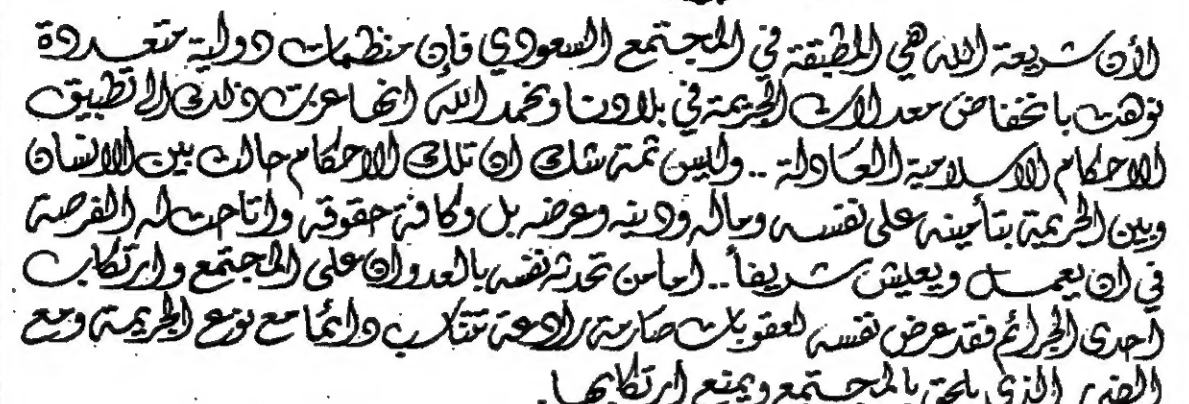 لأن شريعة الله هي المطبقة في المجتمع السعودي فإن منظمات دولية متعددة
نوهت بانخفاض معدلات الجريمة في بلادنا ونحمد الله انها عزت ذلك الى تطبيق
الاحكام الاسلامية العادلة .. وليس ثمة شك ان تلك الاحكام حالت بين الانسان
وبين الجريمة بتأمينه على نفسه وماله ودينه وعرضه بل وكافة حقوقه واتاحت له الفرصة
في ان يعمل ويعيش شريفاً .. اما من تحدثه نفسه بالعدوان على المجتمع وارتكاب
احدى الجرائم فقد عرض نفسه لعقوبات صارمة رادعة تتناسب دائما مع نوع الجريمة ومع
الضرر الذي يلحق بالمجتمع ويمنع ارتكابها .